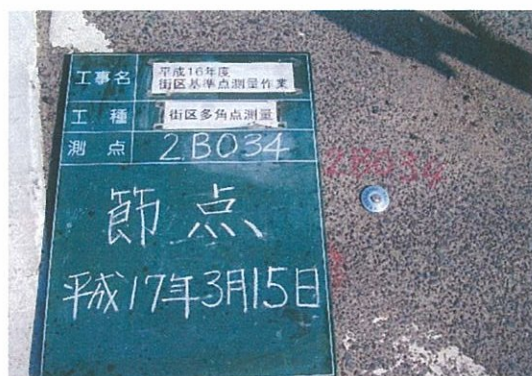 工事名 平成16年度
街区基準点測量作業
工種 街区多角点測量
測点 2B034
2B034
節点
平成17年3月15日